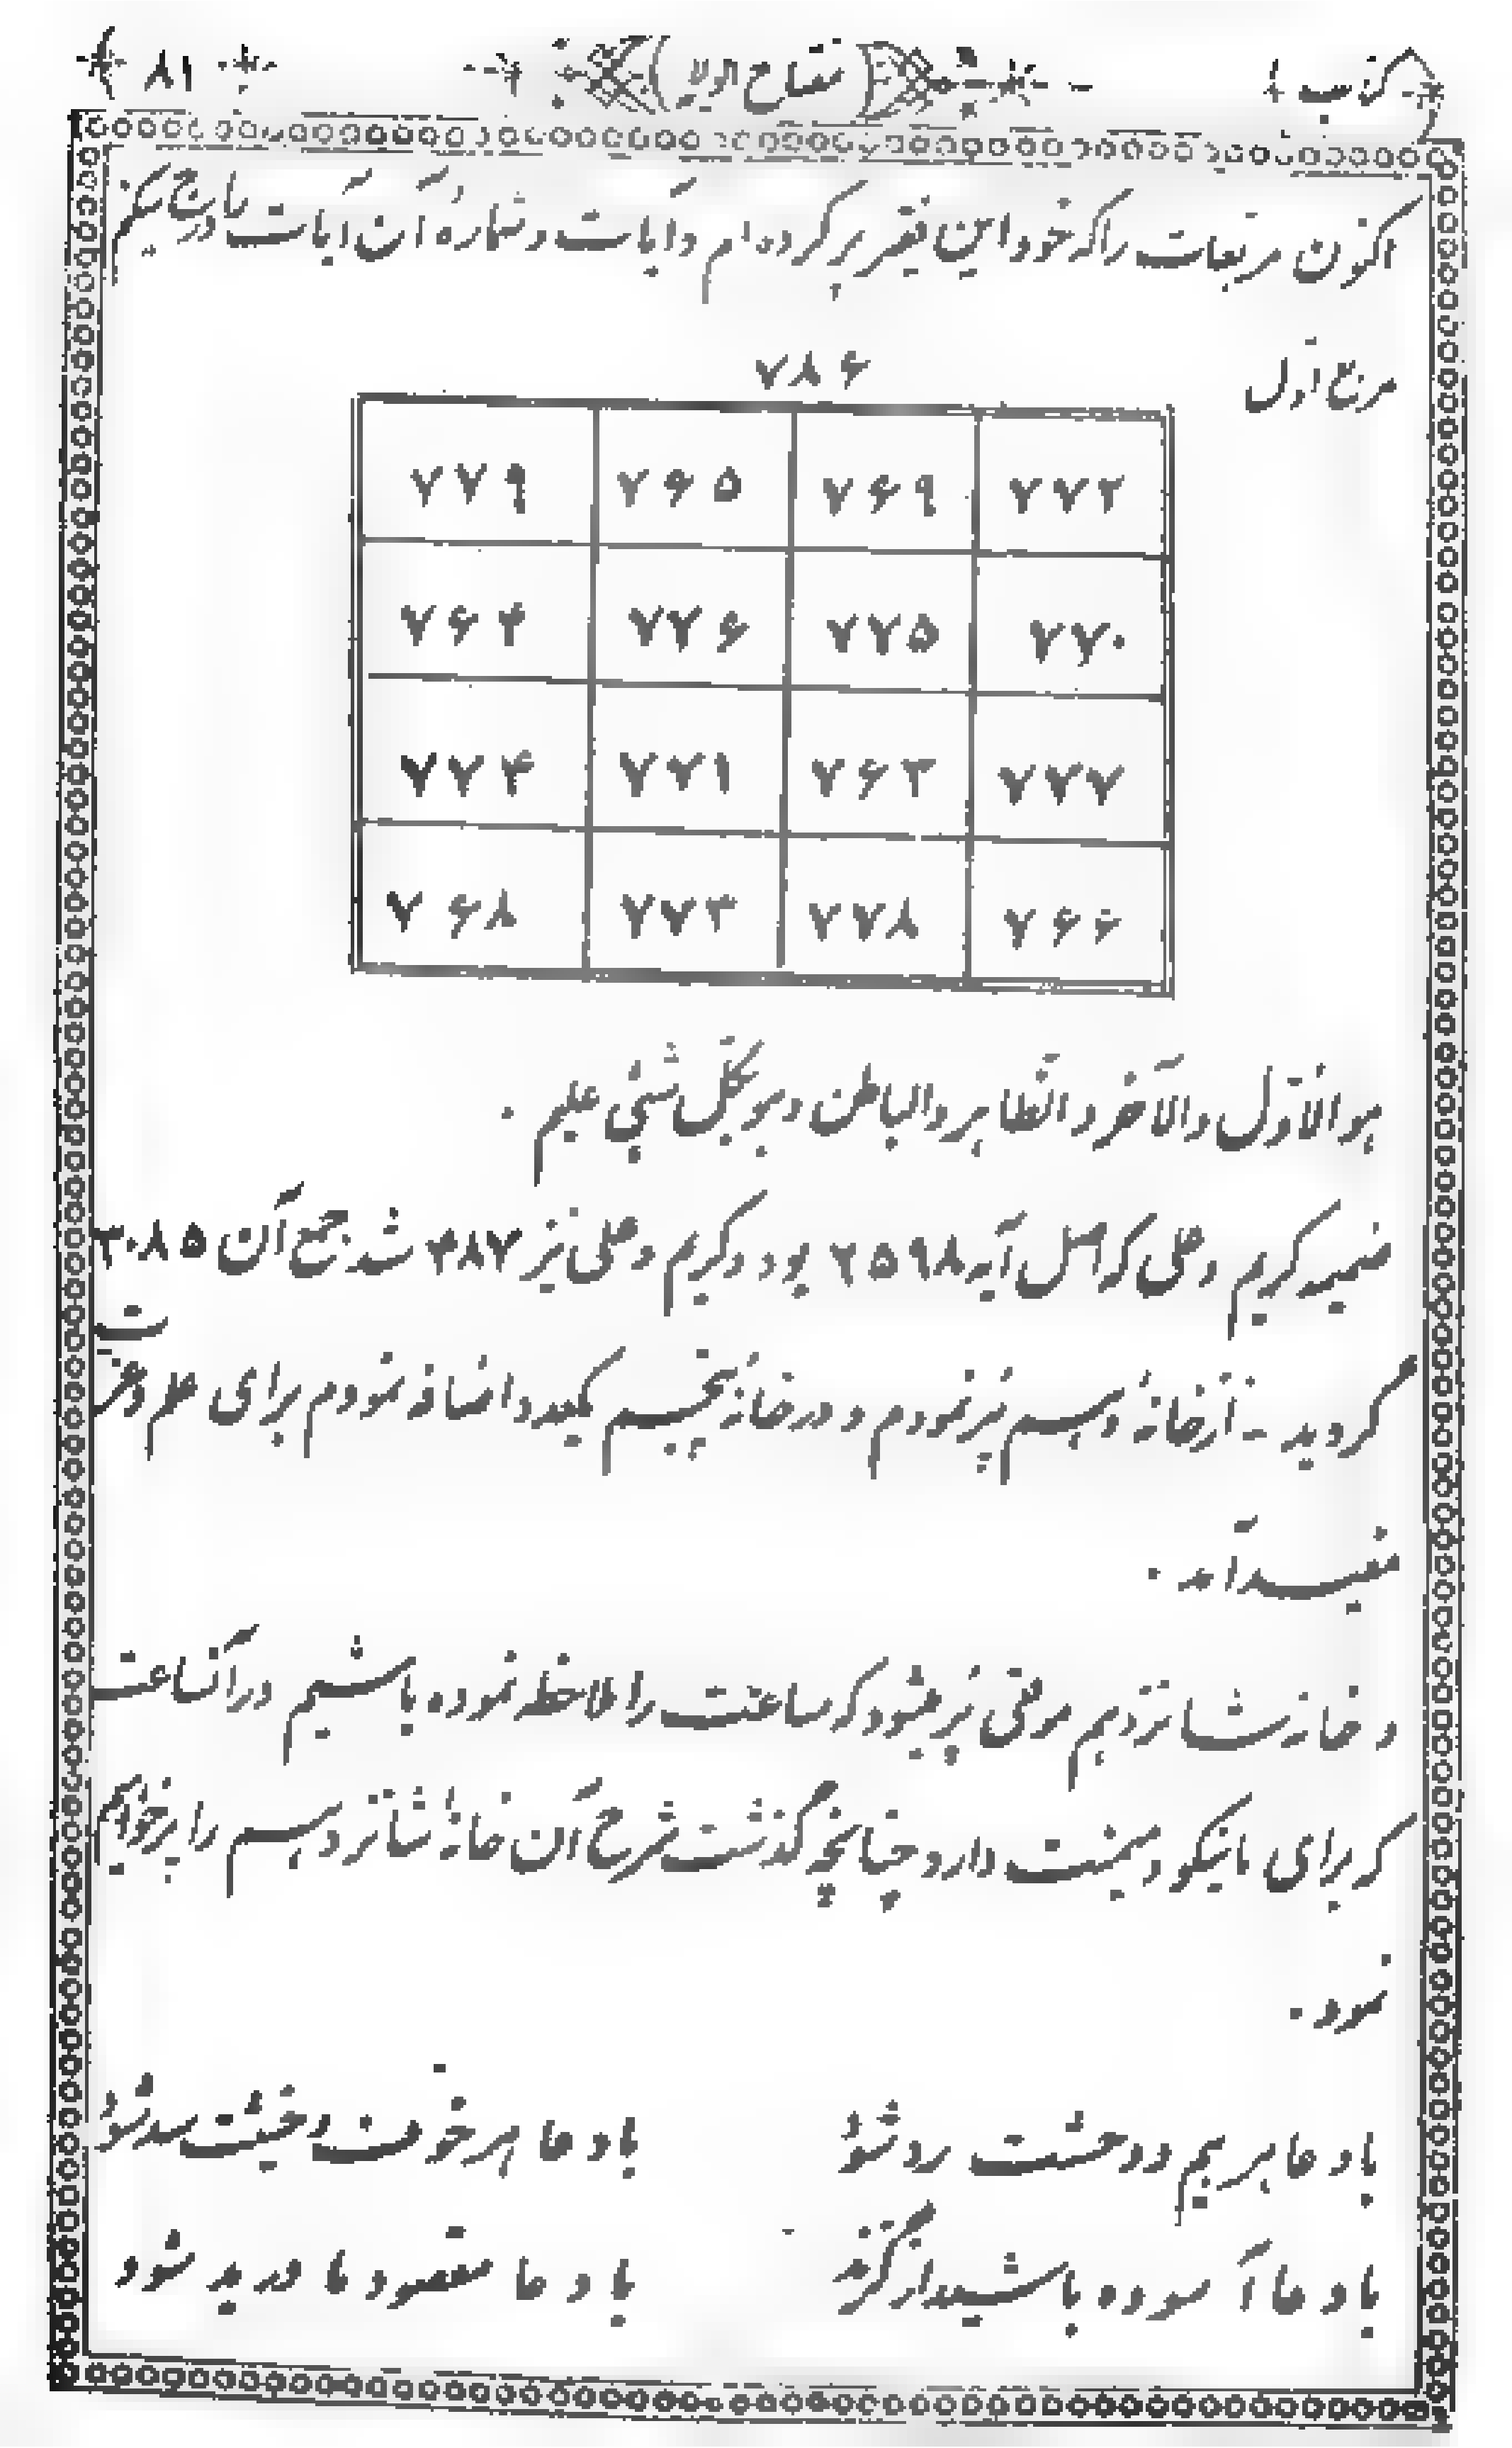 کتاب (مفتاح الولایه) ۸۱
اکنون مربعات را که خود این فقیر پر کرده‌ام و آیات و شمارهٔ آن آیات را درج میکنم
مربع اوّل
۷۸۶
۷۷۹ ۷۶۵ ۷۶۹ ۷۷۲
۷۶۴ ۷۷۶ ۷۷۵ ۷۷۰
۷۷۴ ۷۷۱ ۷۶۳ ۷۷۷
۷۶۸ ۷۷۳ ۷۷۸ ۷۶۶
هو الاوّل والآخر والظّاهر والباطن وهو بکلّ شیٔی علیم .
ضمیمه کریم وعلی که اصل آیه ۲۵۹۸ بود و کریم وعلی نیز ۴۸۷ شد جمع آن ۳۰۸۵
گردید - از خانهٔ دهم پر نمودم و در خانهٔ پنجم یکعدد اضافه نمودم برای علم و عزت
مفید آمد .
و خانه شانزدهم موقعی پر میشود که ساعت را ملاحظه نموده باشیم در آنساعت
که برای ما نیکو و میمنت دارد چنانچه گذشت شرح آن خانهٔ شانزدهم را پر خواهیم
نمود .
با دعا هر بیم و وحشت رد شود با دعا هر خوف و خشیت سد شود
با دعا آسوده باشید از گزند با دعا مقصود ما در ید شود